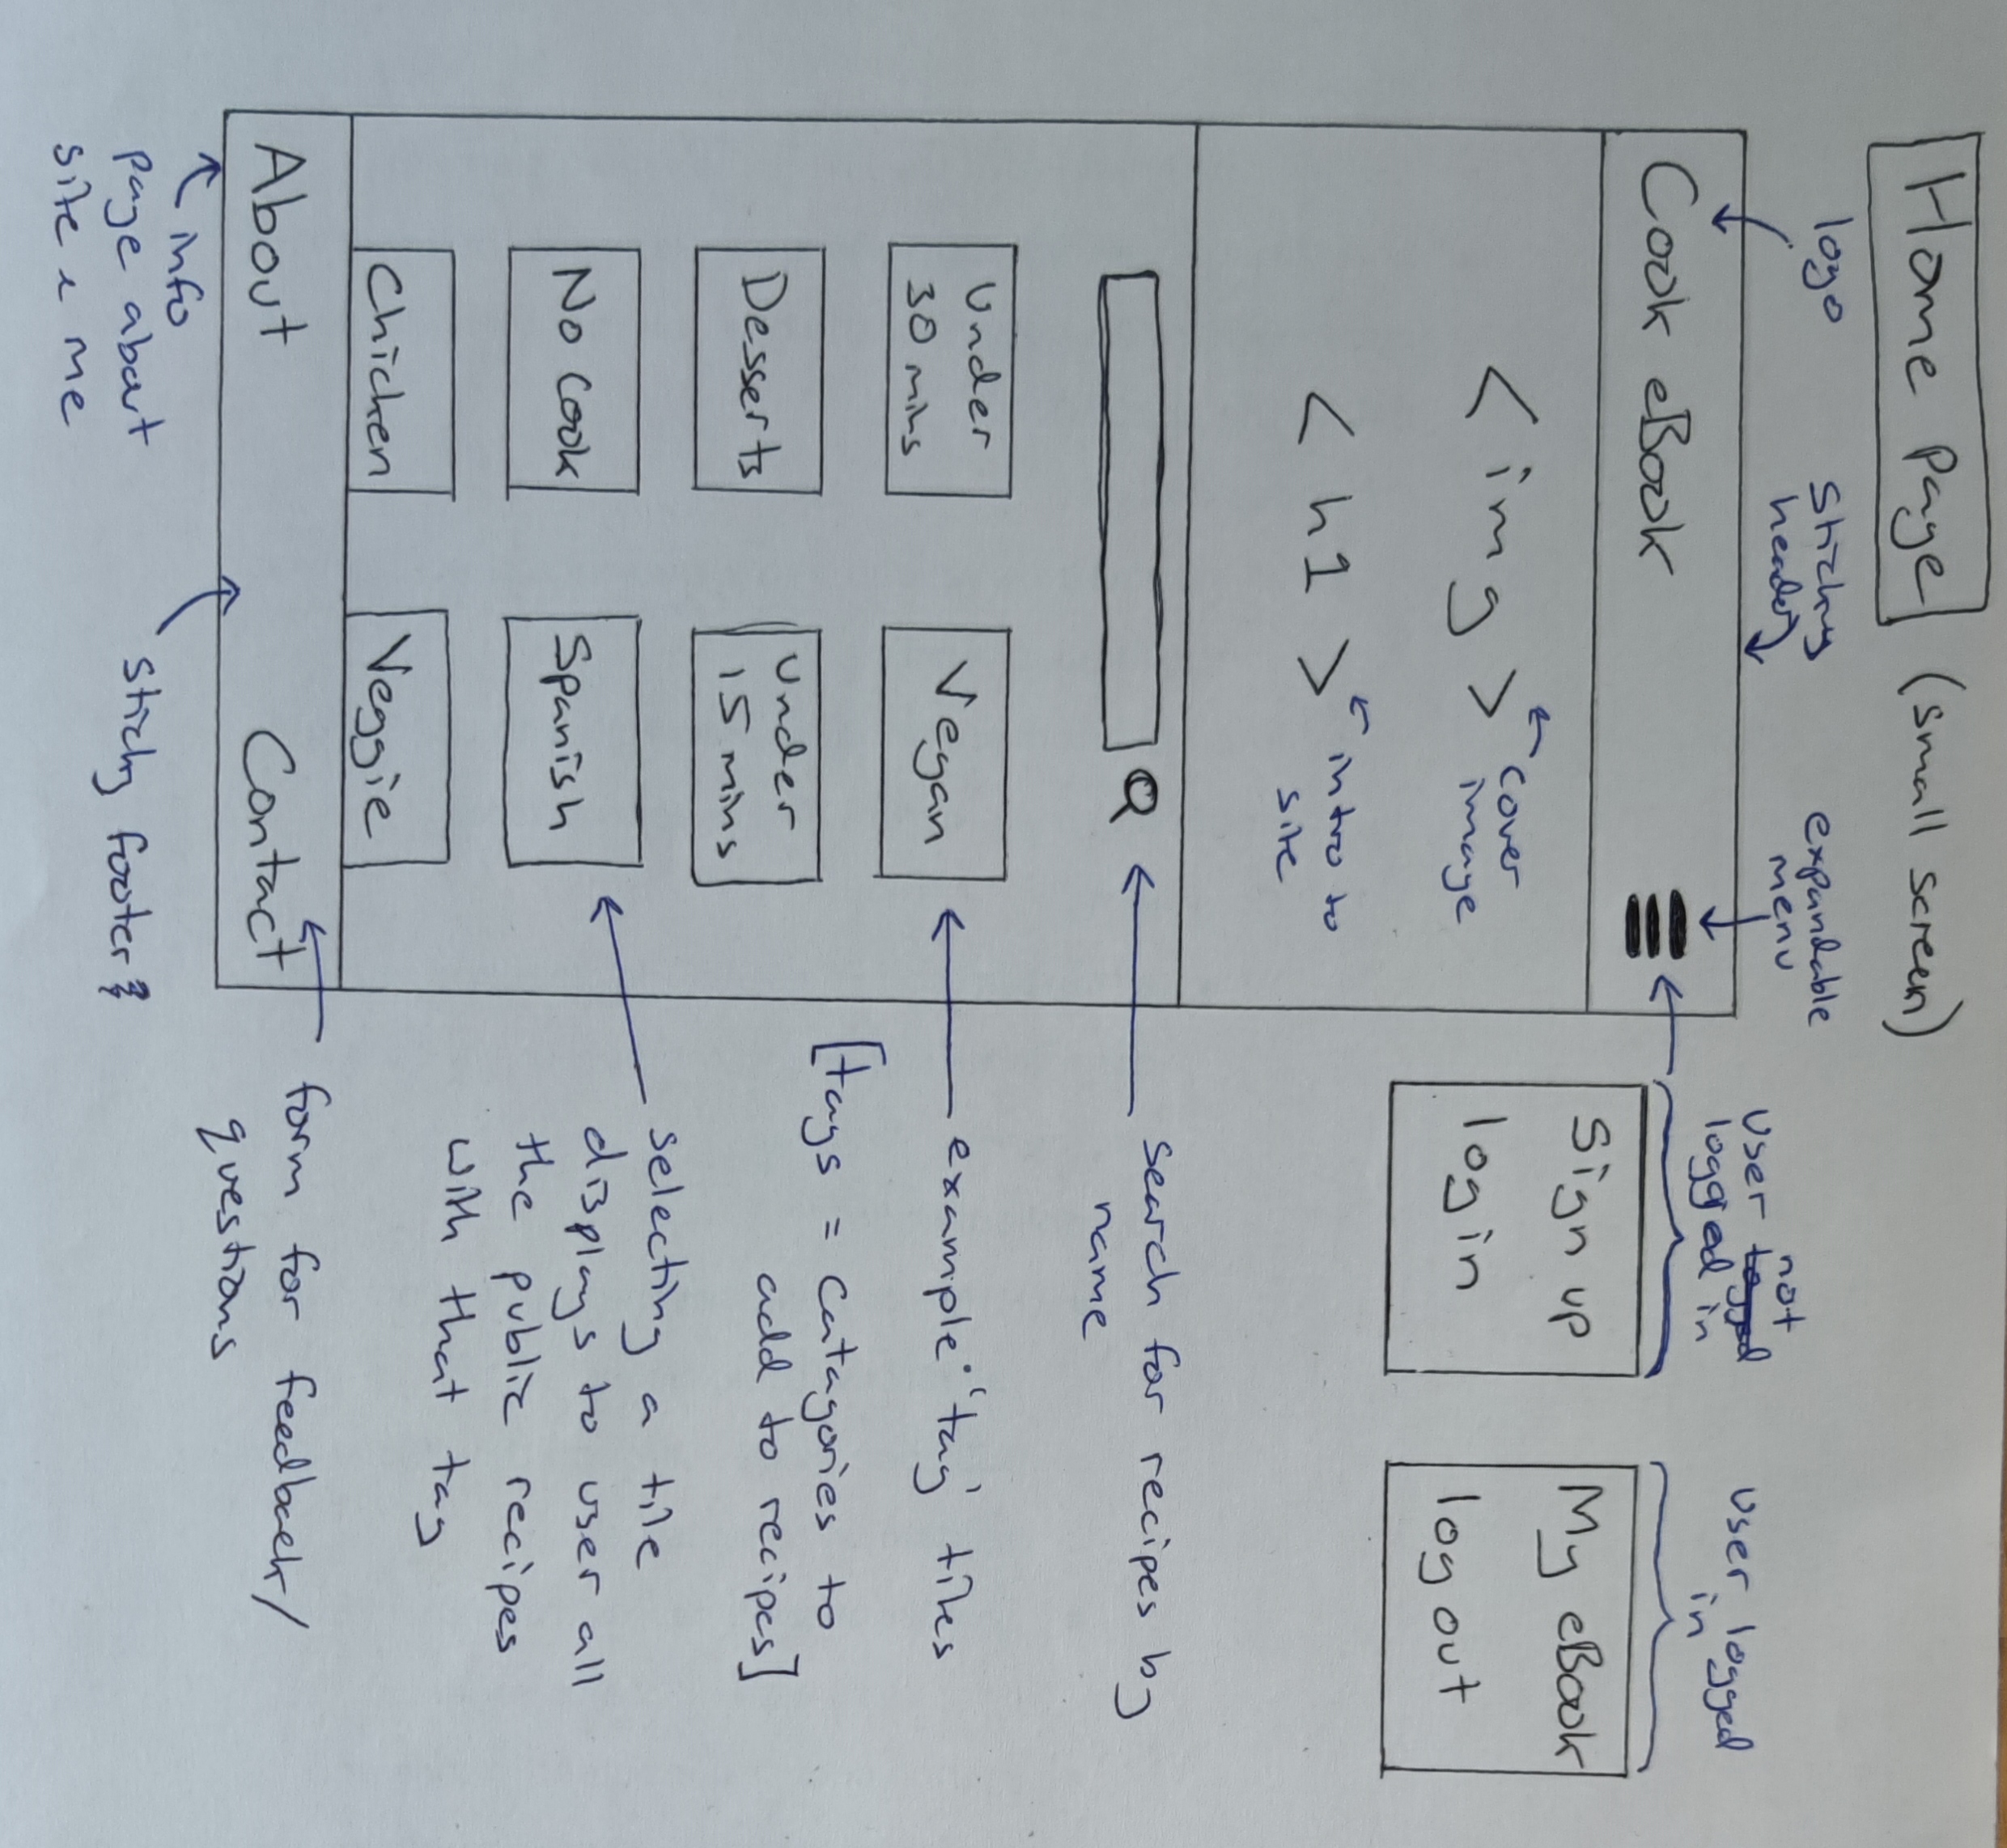 Home Page (small screen)
logo
sticky
header
expandable
menu
user not
logged in
user logged
in
Cook eBook
Sign up
log in
My eBook
log out
<img>
cover
image
<h1>
intro to
site
search for recipes by
name
Under
30 mins
Vegan
example 'tag' tiles
[tags = catagories to
add to recipes]
Desserts
Under
15 mins
No Cook
Spanish
selecting a tile
displays to user all
the public recipes
with that tag
Chicken
Veggie
About
Contact
form for feedback/
questions
info
page about
site & me
sticky footer